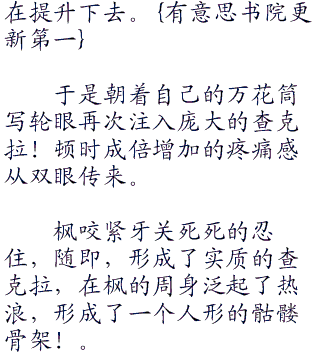 在提升下去。{有意思书院更
新第一}
于是朝着自己的万花筒
写轮眼再次注入庞大的查克
拉！顿时成倍增加的疼痛感
从双眼传来。
枫咬紧牙关死死的忍
住，随即，形成了实质的查
克拉，在枫的周身泛起了热
浪，形成了一个人形的骷髅
骨架！。